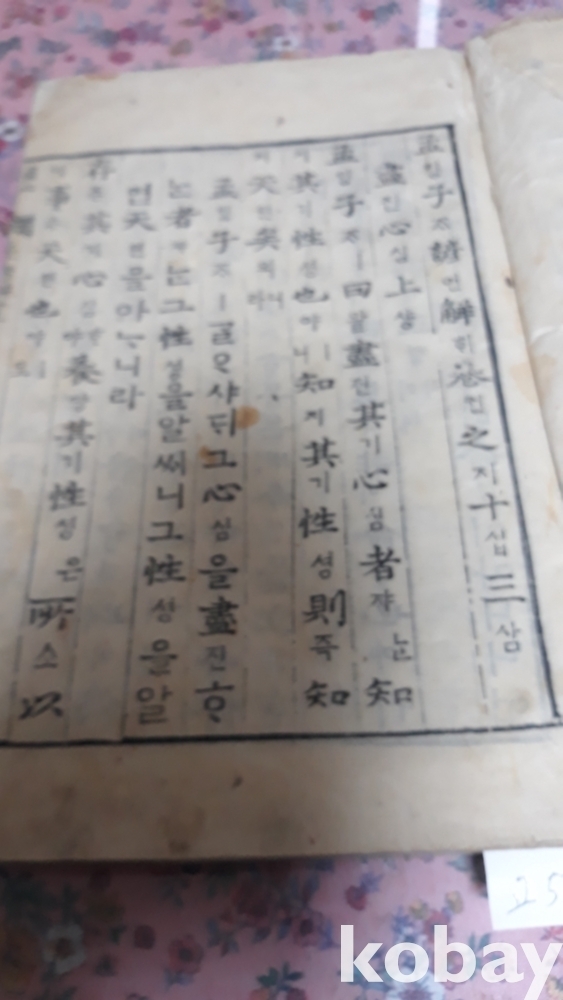 孟ᄆᆡᆼ子ᄌᆞ諺언解ᄒᆡ卷권之지十십三삼
盡진心심上샹
孟ᄆᆡᆼ子ᄌᆞㅣ曰왈盡진其기心심者쟈ᄂᆞᆫ知
디其기性셩也야ㅣ니知디其기性셩則즉知
디天텬矣의니라
孟ᄆᆡᆼ子ᄌᆞㅣᄀᆞᆯᄋᆞ샤ᄃᆡ그心심을盡진ᄒᆞ
ᄂᆞᆫ者쟈ᄂᆞᆫ그性셩을알ᄊᆡ니그性셩을알
면天텬을아ᄂᆞ니라
存존其기心심ᄒᆞ야養양其기性셩은所소以
이事ᄉᆞ天텬也야ㅣ오
kobay